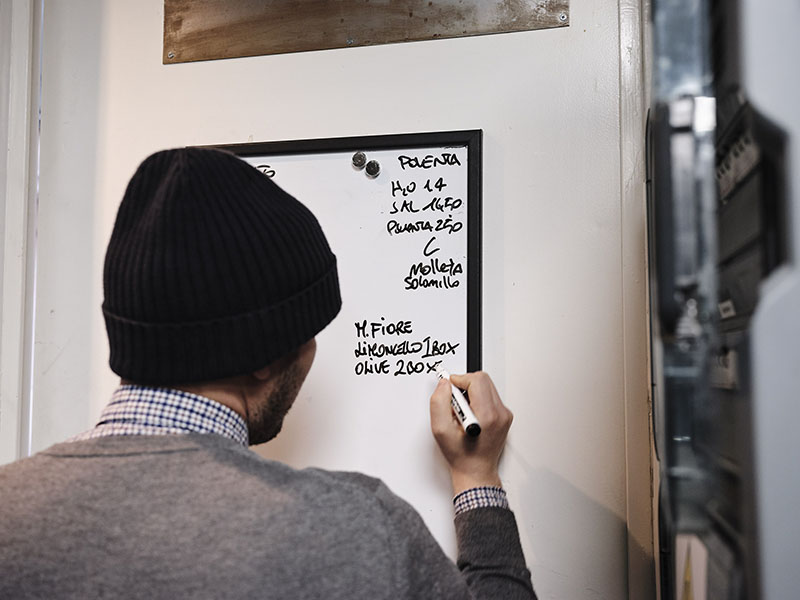 POLENTA
H2O 1.4
SAL 1450
POLENTA 250
C
Molleja
Solomillo
M. FIORE
LIMONCELLO 1 BOX
OLIVE 2 BOX